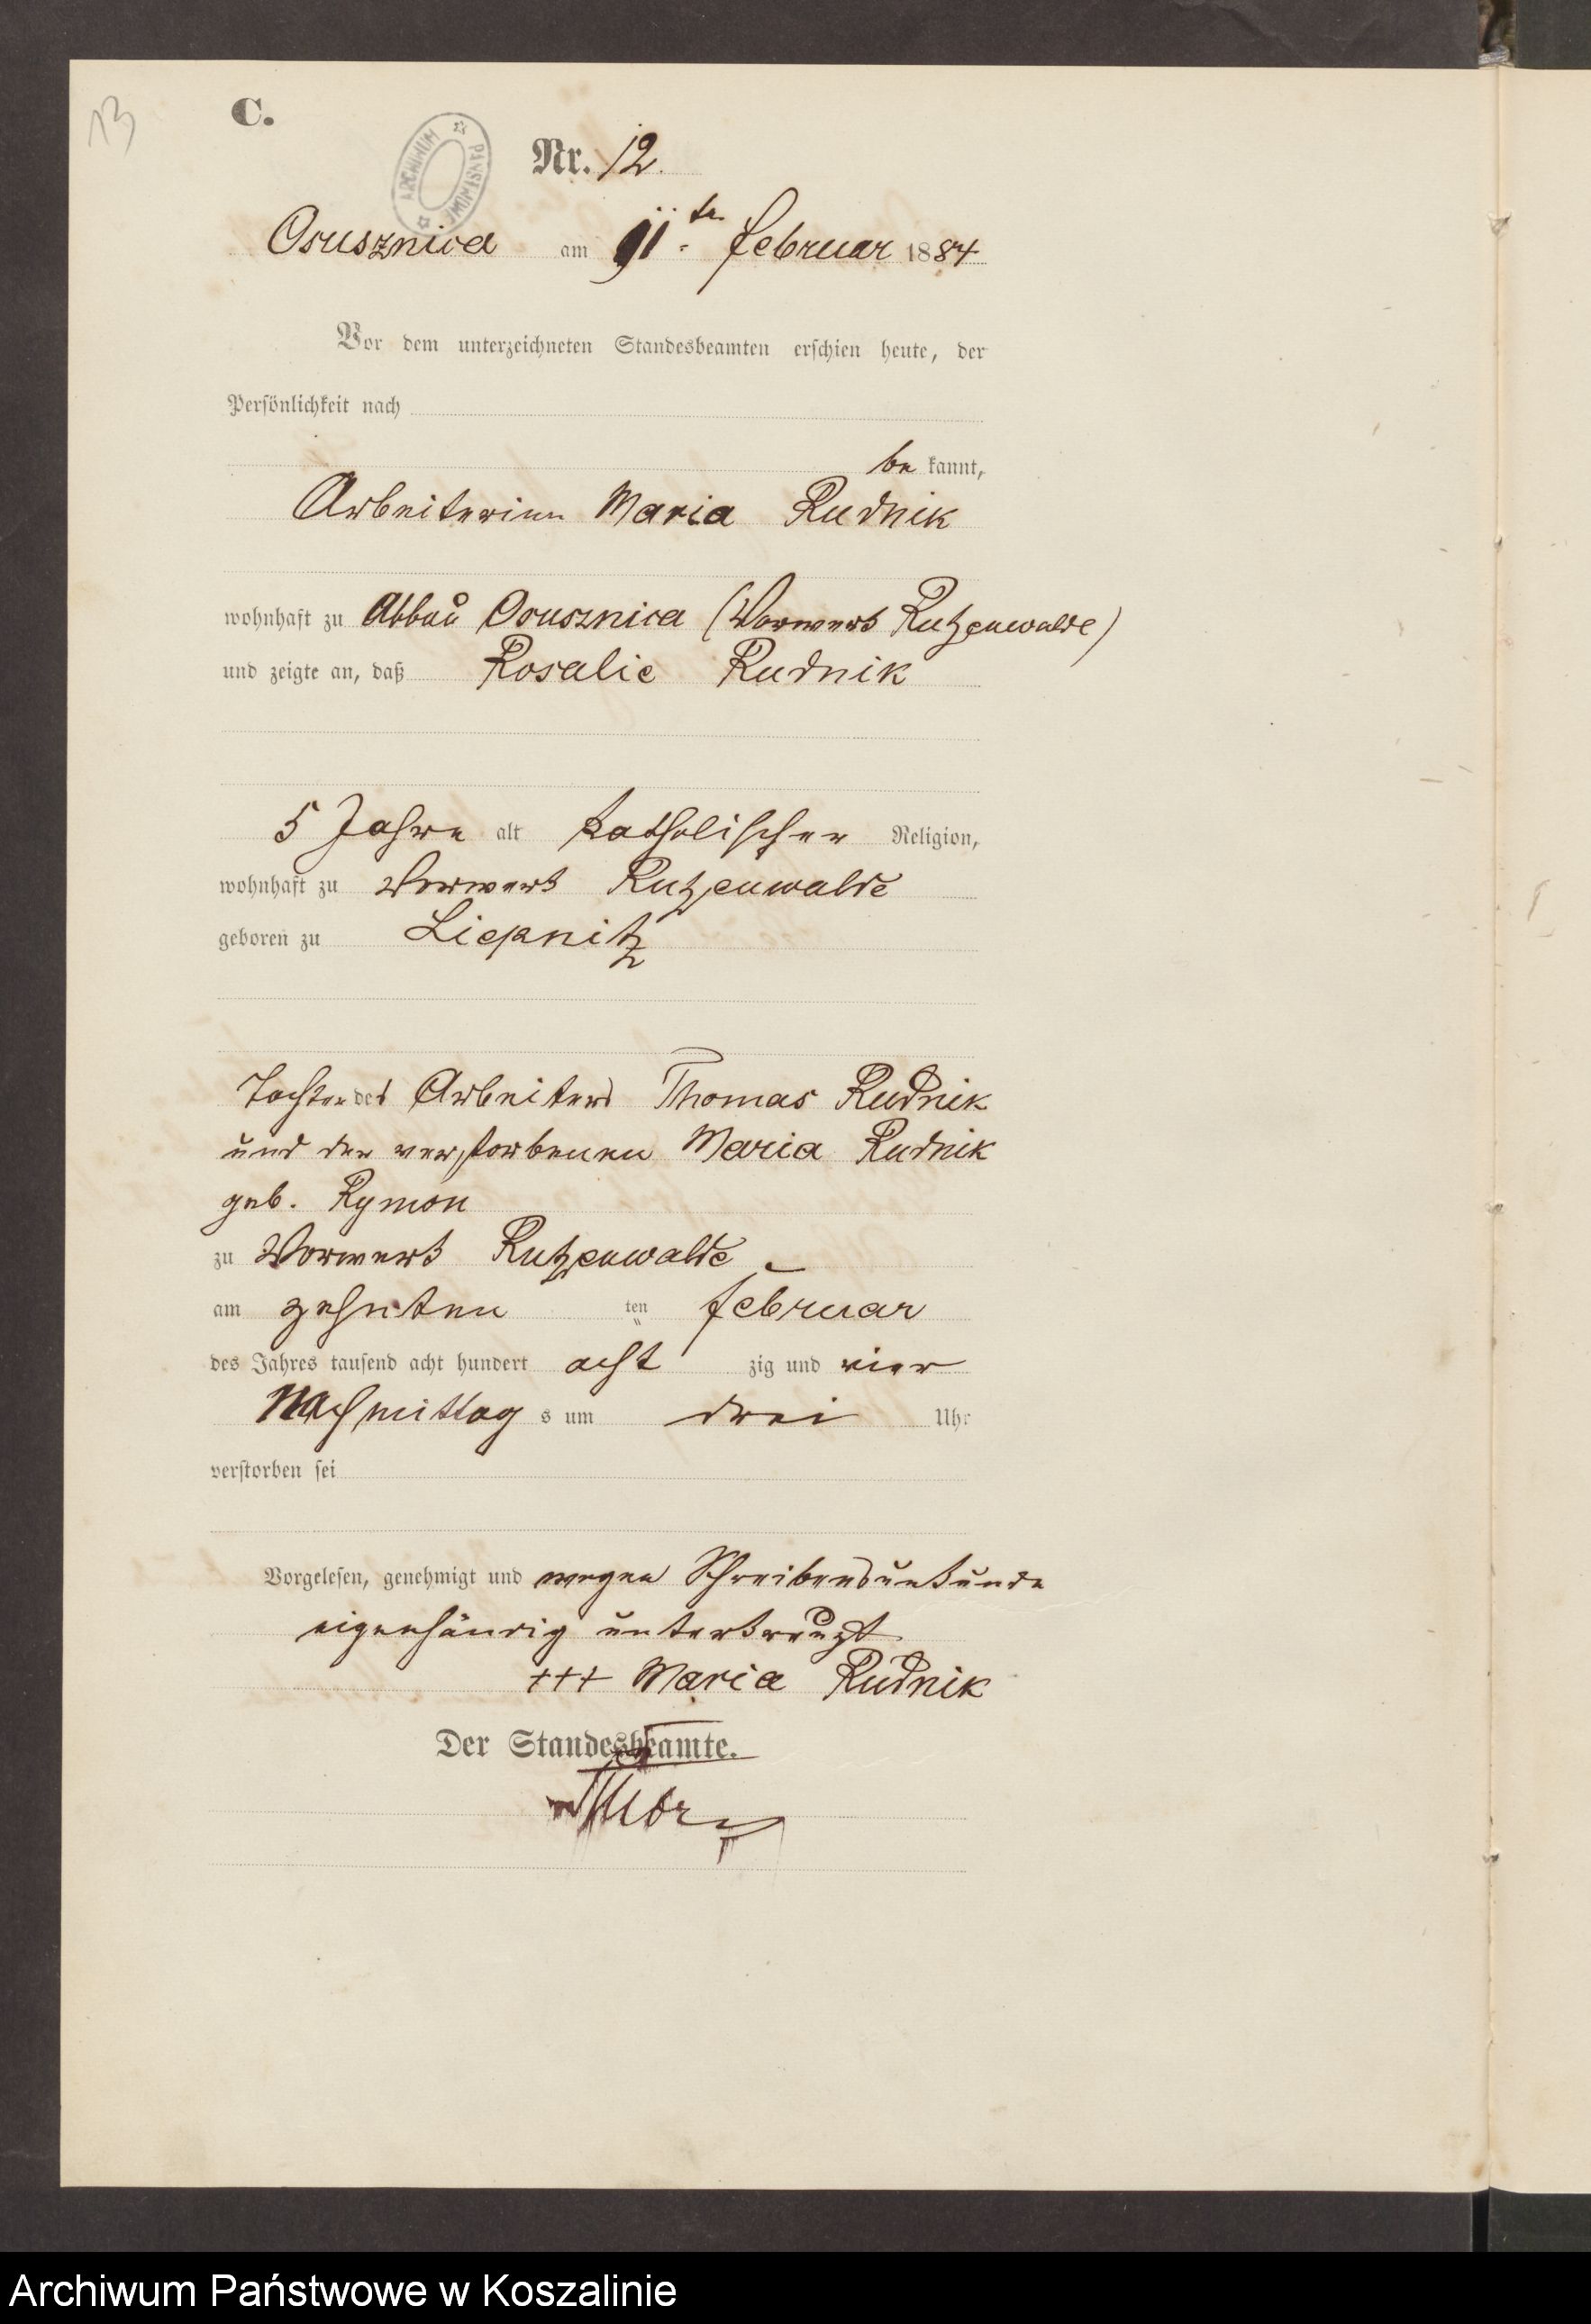 13
C.
ARCHIWUM PAŃSTWOWE
Nr. 12.
Osusznica am 11ten Februar 1884
Vor dem unterzeichneten Standesbeamten erschien heute, der
Persönlichkeit nach
be kannt,
Arbeiterinn Maria Rudnik
wohnhaft zu Abbau Osusznica (Vorwerk Rutzenwalde)
und zeigte an, daß Rosalie Rudnik
5 Jahre alt katholischer Religion,
wohnhaft zu Vorwerk Rutzenwalde
geboren zu Liepnitz
Tochter des Arbeiters Thomas Rudnik
und der verstorbenen Maria Rudnik
geb. Rymon
zu Vorwerk Rutzenwalde
am zehnten ten Februar
des Jahres tausend acht hundert acht zig und vier
Nachmittag s um drei Uhr
verstorben sei
Vorgelesen, genehmigt und wegen Schreibensunkunde
eigenhändig unterkreuzt
+++ Maria Rudnik
Der Standesbeamte.
Archiwum Państwowe w Koszalinie